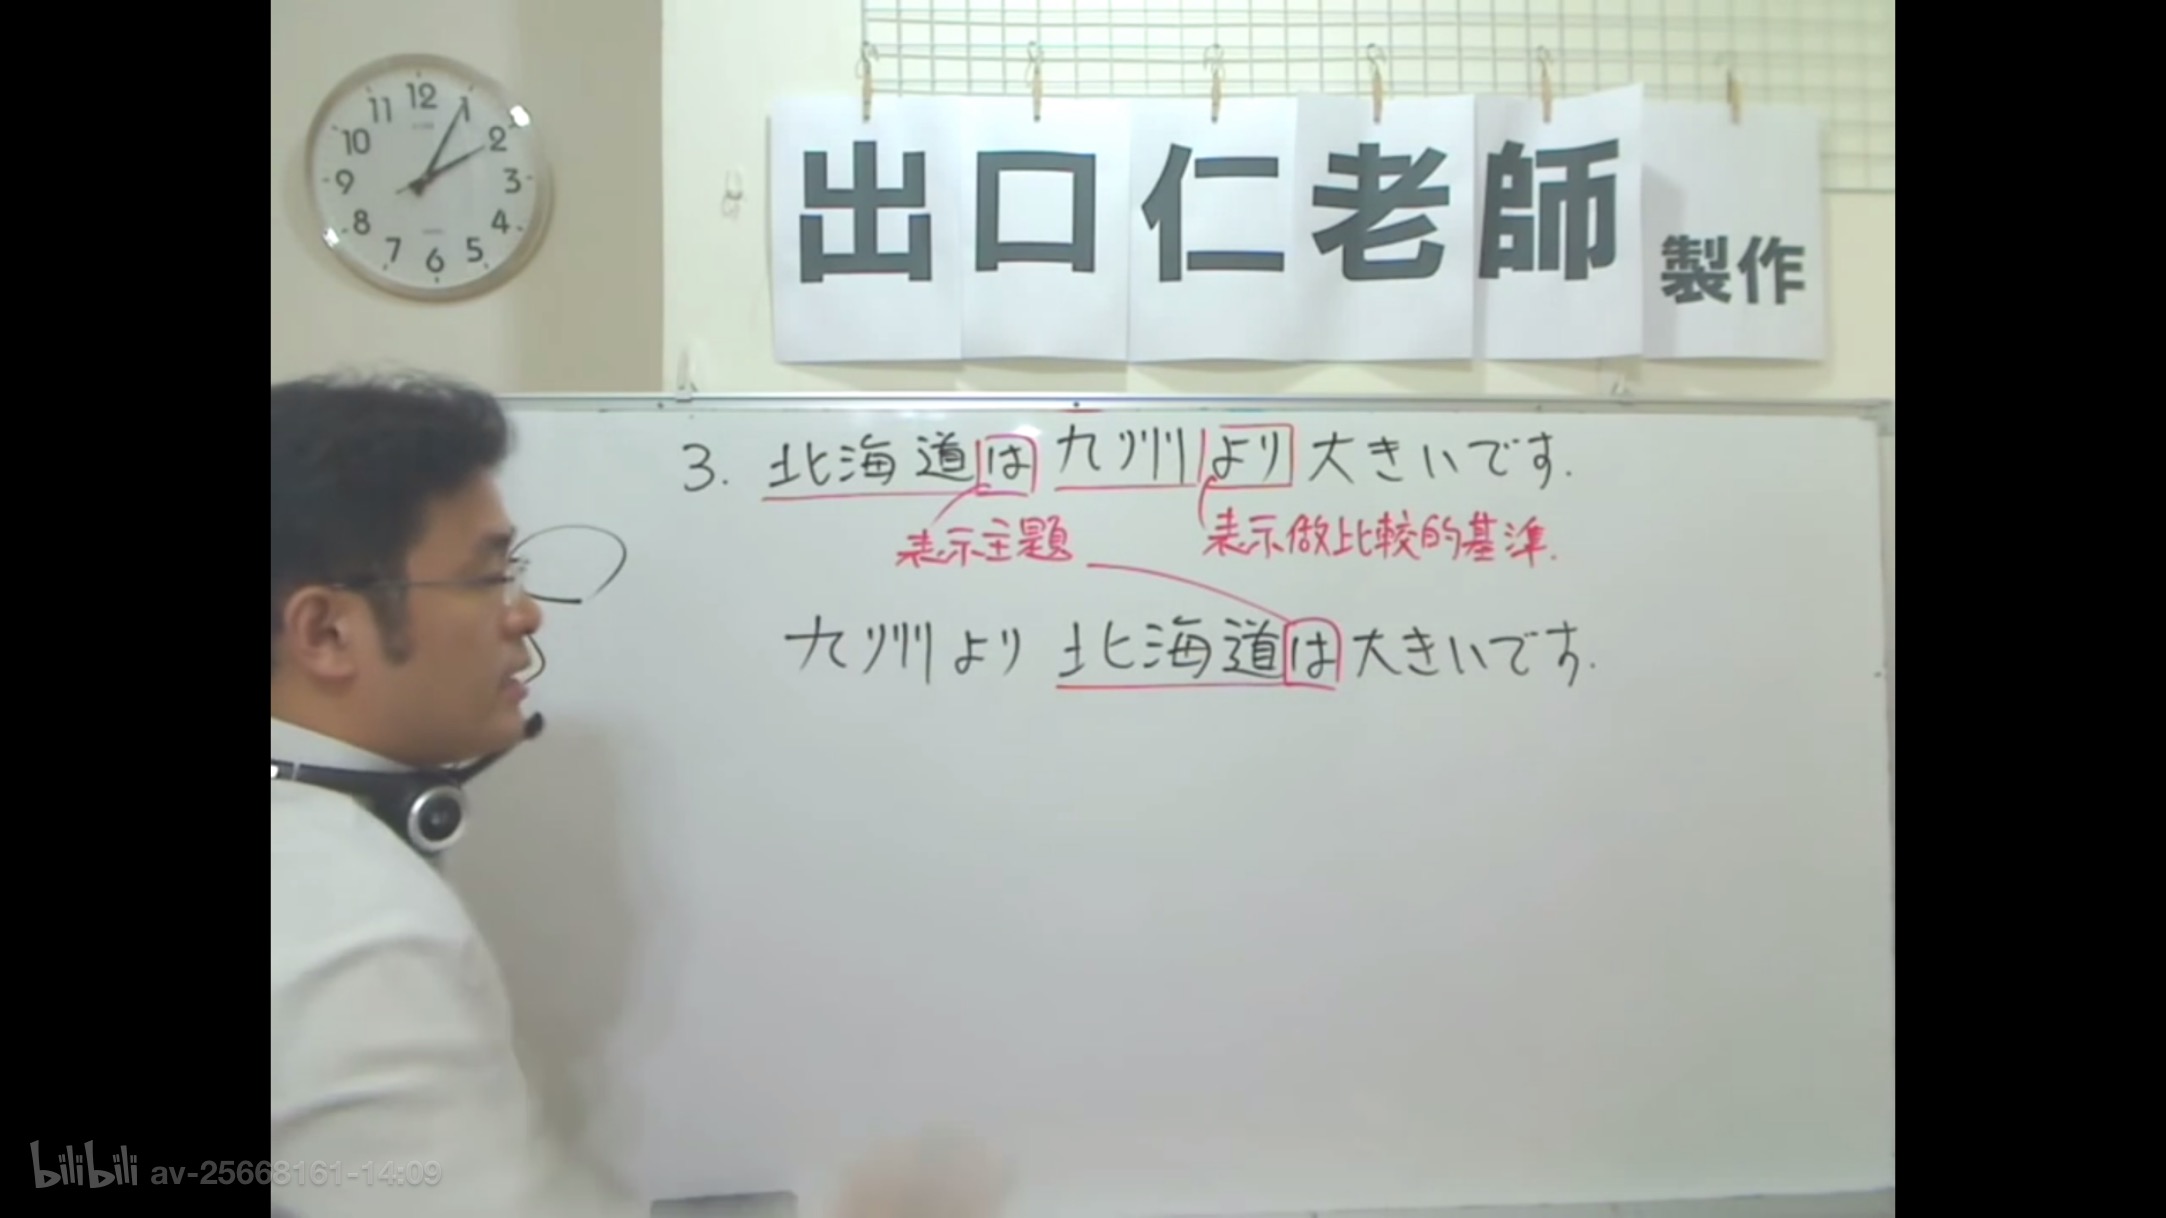 12
11
1
10
2
9
3
8
4
7
5
6
出口仁老師
製作
3. 北海道は九州より大きいです.
表示主題
表示做比較的基準.
九州より北海道は大きいです.
bilibili av-25668161-14:09